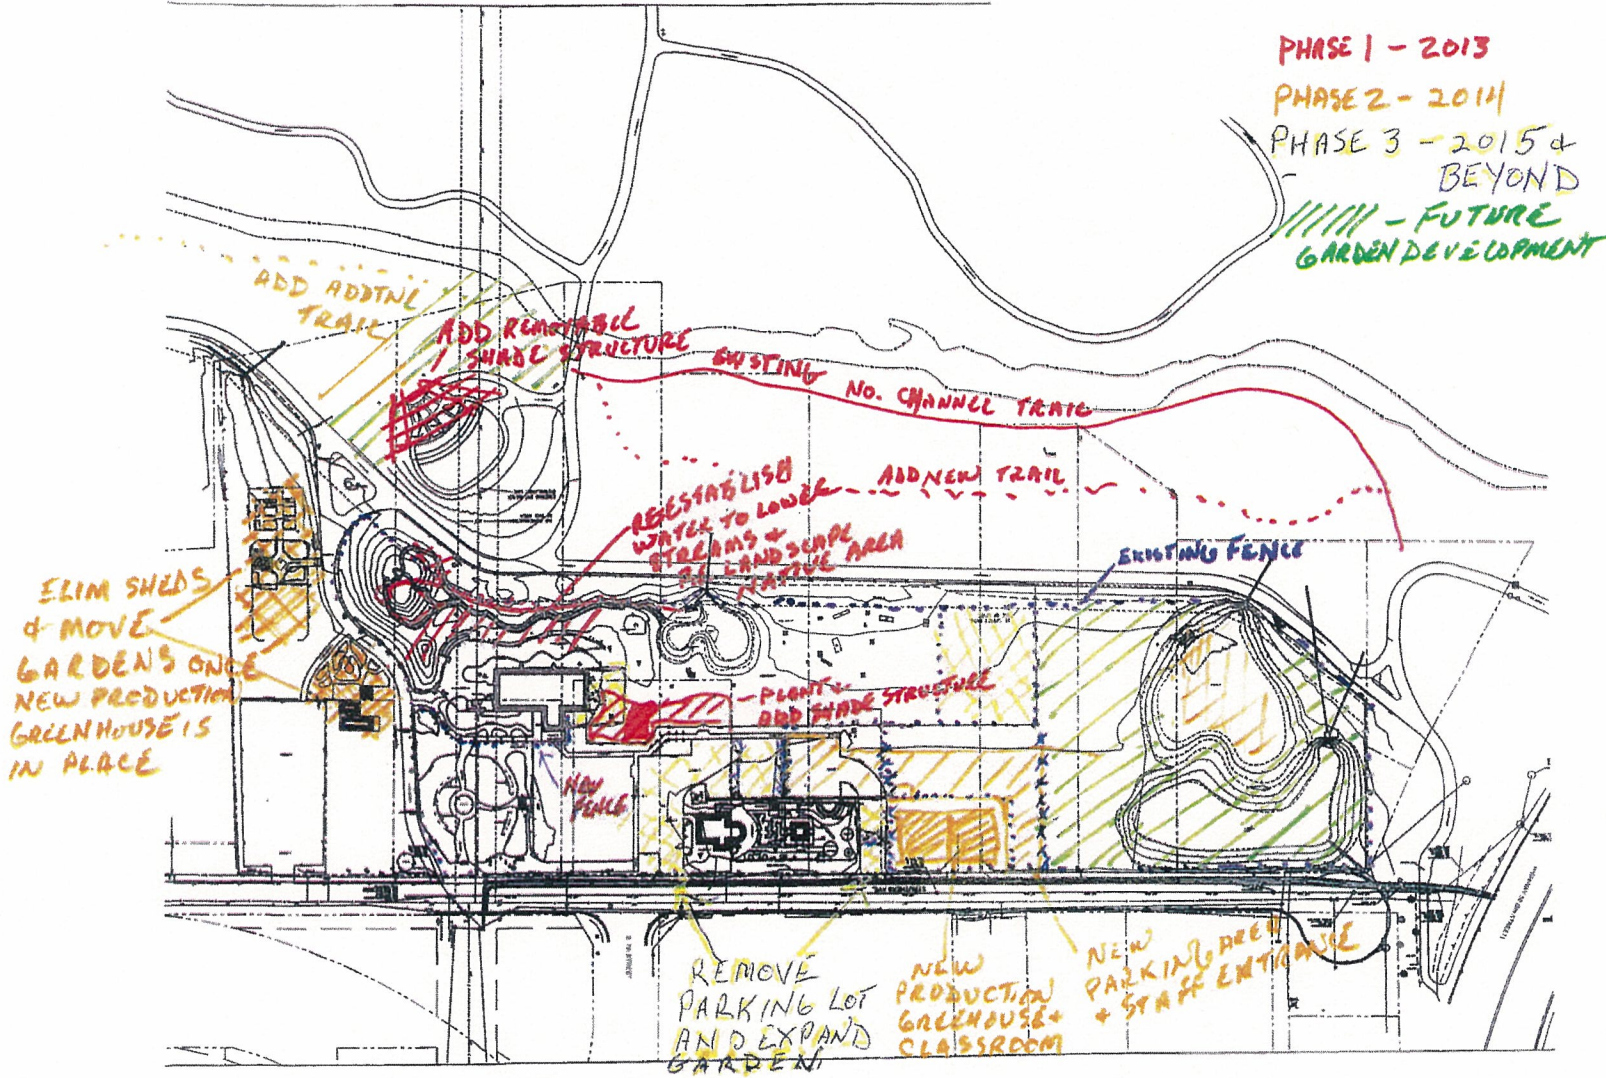 PHASE 1 - 2013
PHASE 2 - 2014
PHASE 3 - 2015 &
BEYOND
- FUTURE
GARDEN DEVELOPMENT
ADD ADDTNL
TRAIL
ADD REMOVABLE
SHADE STRUCTURE
EXISTING
NO. CHANNEL TRAIL
ADD NEW TRAIL
REESTABLISH
WATER TO LOWER
STREAMS &
RE LANDSCAPE
NATIVE AREA
EXISTING FENCE
ELIM SHEDS
& MOVE
GARDENS ONCE
NEW PRODUCTION
GREENHOUSE IS
IN PLACE
- PLANT &
ADD SHADE STRUCTURE
NEW
FENCE
REMOVE
PARKING LOT
AND EXPAND
GARDEN
NEW
PRODUCTION
GREENHOUSE &
CLASSROOM
NEW
PARKING AREA
& STAFF ENTRANCE